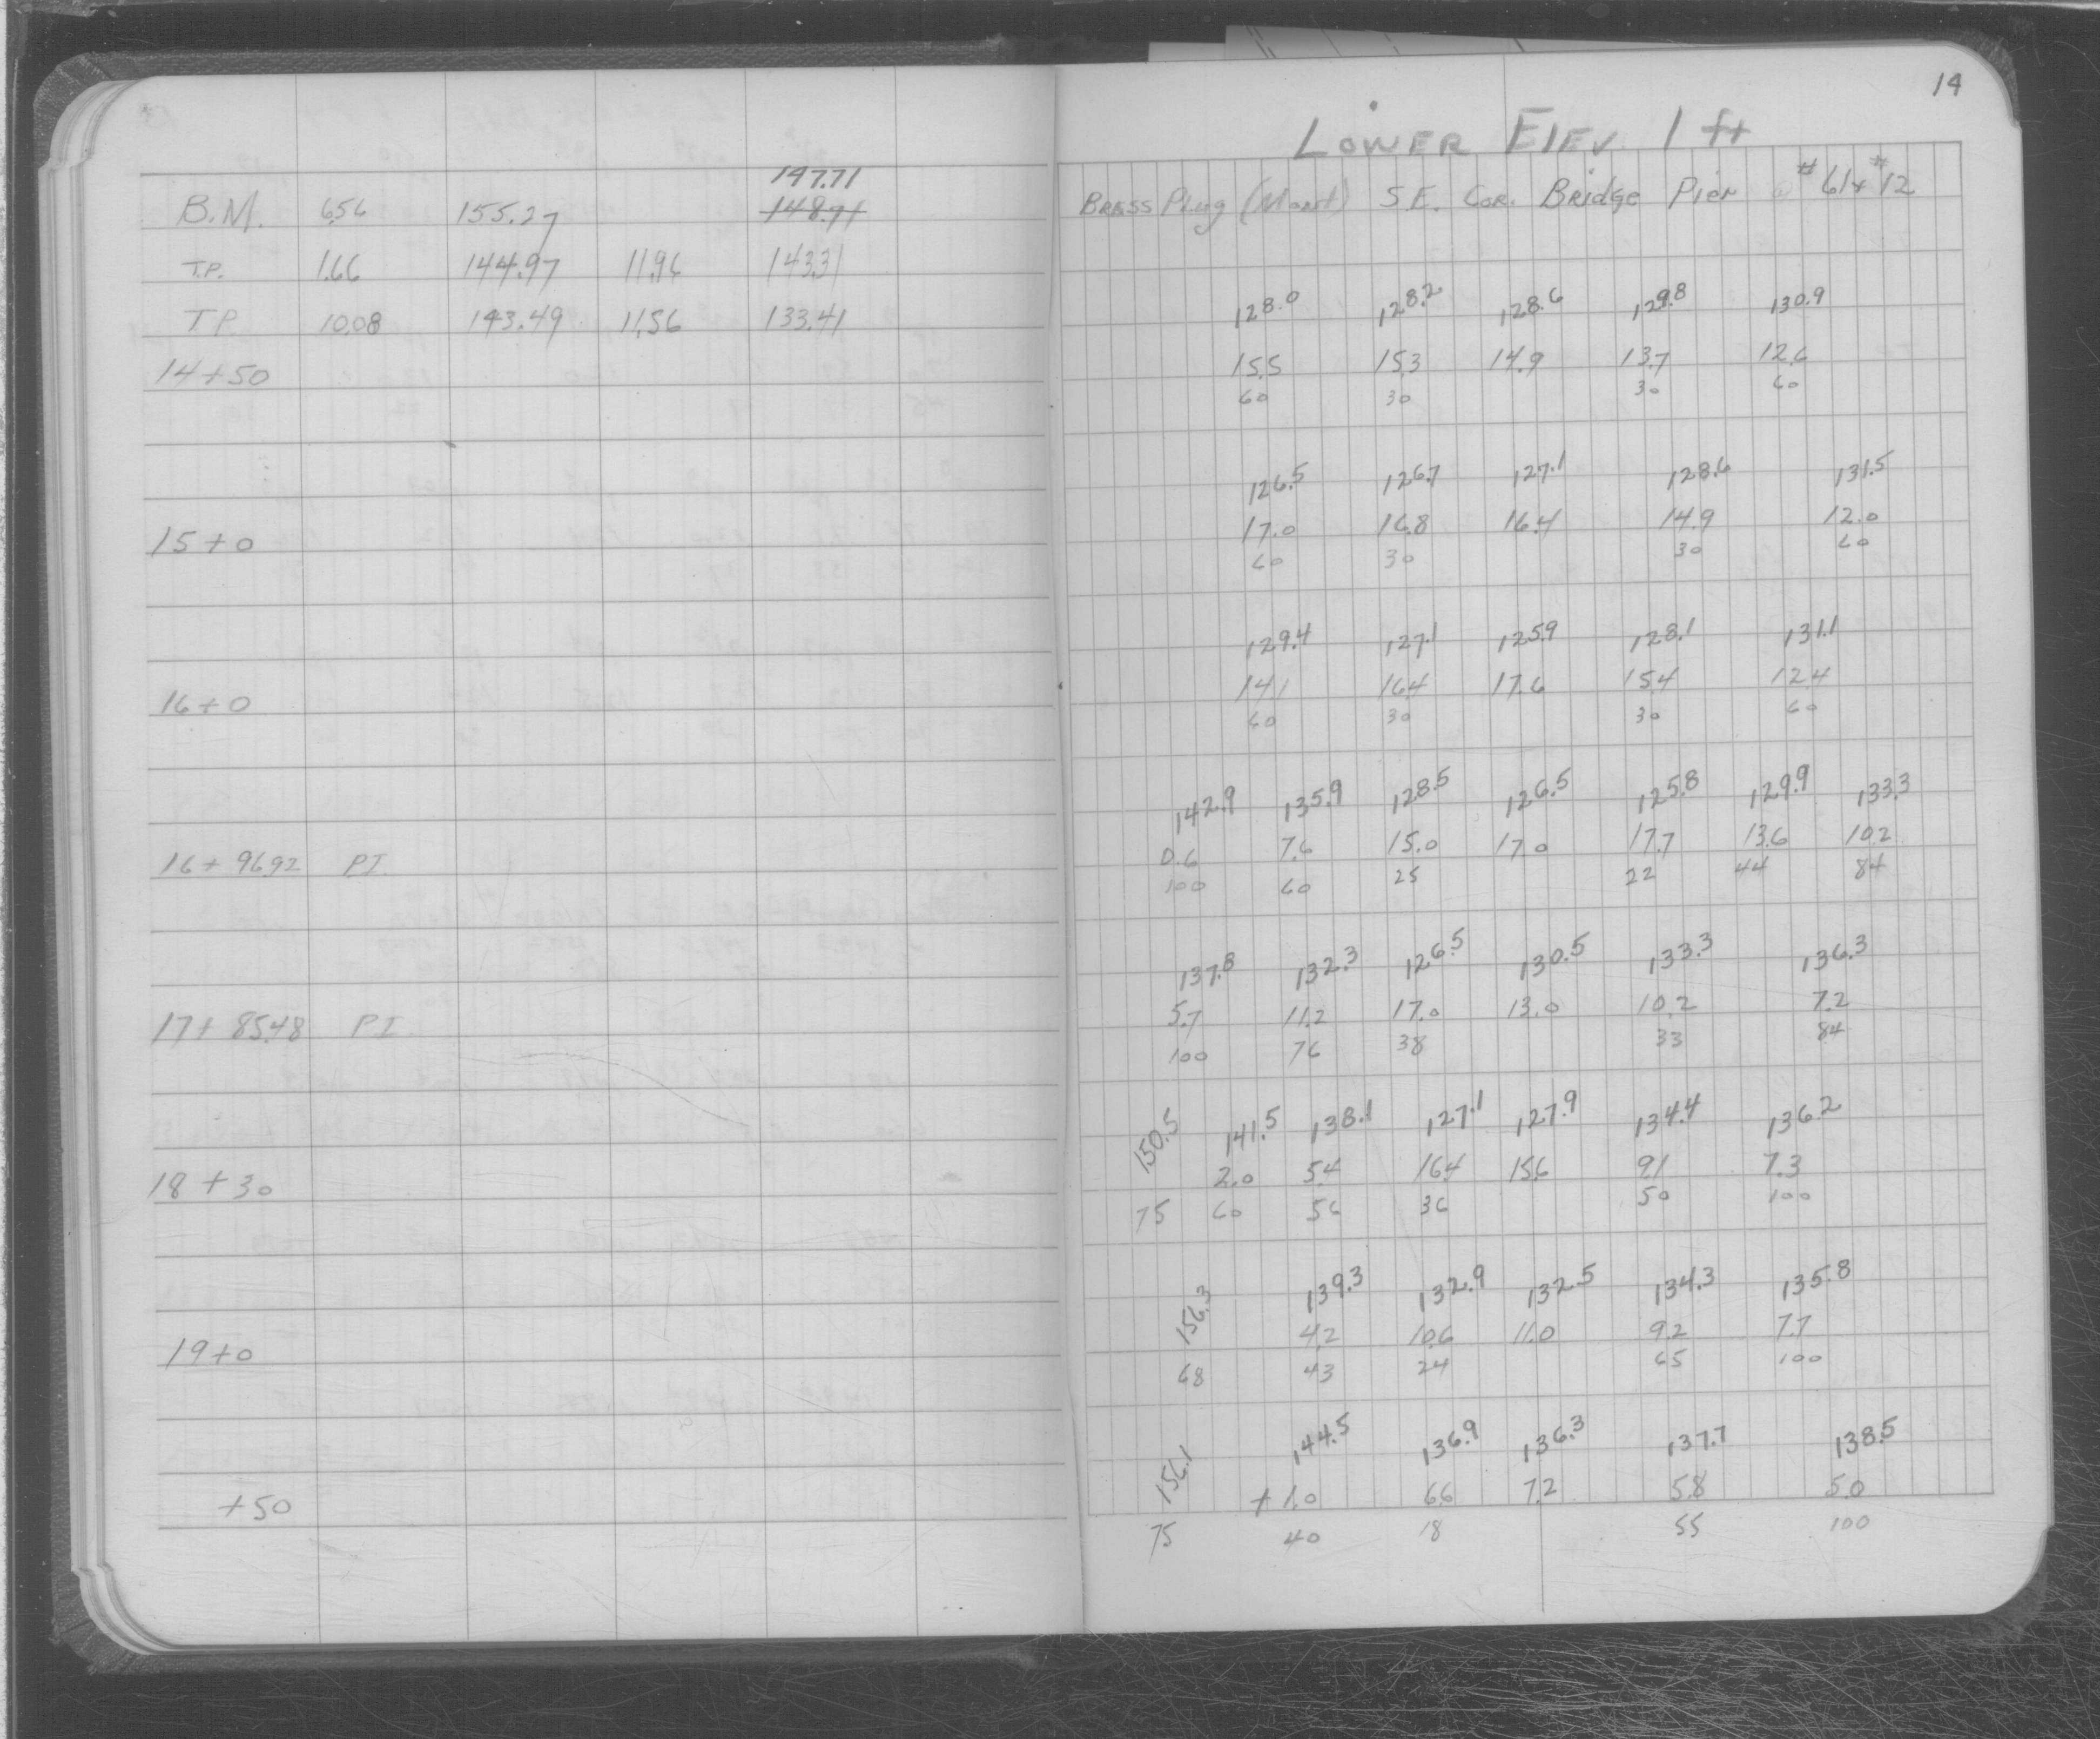 14
LOWER ELEV 1 ft
147.71
B.M. 6.56 155.27 148.71 BRASS Plug (Mont) S.E. COR. Bridge Pier @ #61x #12
T.P. 1.66 144.97 11.96 143.31
T.P. 10.08 143.49 11.56 133.41
128.0 128.2 128.6 129.8 130.9
14+50 15.5 15.3 14.9 13.7 12.6
60 30 30 60
126.5 126.7 127.1 128.6 131.5
15+0 17.0 16.8 16.4 14.9 12.0
60 30 30 60
129.4 127.1 125.9 128.1 131.1
16+0 14.1 16.4 17.6 15.4 12.4
60 30 30 60
142.9 135.9 128.5 126.5 125.8 129.9 133.3
16+96.92 PI 0.6 7.6 15.0 17.0 17.7 13.6 10.2
100 60 25 22 44 84
137.8 132.3 126.5 130.5 133.3 136.3
17+85.48 PI 5.7 11.2 17.0 13.0 10.2 7.2
100 76 38 33 84
150.5 141.5 138.1 127.1 127.9 134.4 136.2
18+30 2.0 5.4 16.4 15.6 9.1 7.3
75 60 56 36 50 100
156.3 139.3 132.9 132.5 134.3 135.8
19+0 4.2 10.6 11.0 9.2 7.7
68 43 24 65 100
156.1 144.5 136.9 136.3 137.7 138.5
+50 +1.0 6.6 7.2 5.8 5.0
75 40 18 55 100